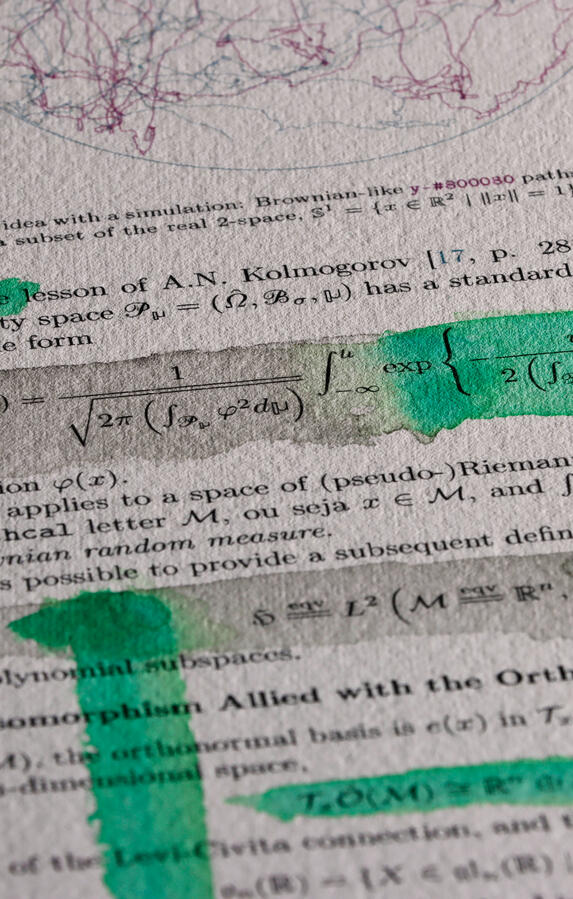 idea with a simulation: Brownian-like y-#800080 path
a subset of the real 2-space, 𝕊¹ = {x ∈ ℝ² | ‖x‖ = 1}
lesson of A.N. Kolmogorov [17, p. 28
ty space 𝒫_𝕡 = (Ω̂, ℬ_σ, 𝕡) has a standard
e form
) = 1 / √(2π (∫_𝒫_𝕡 φ²d𝕡)) ∫_{-∞}^{u} exp { − / 2 (∫
ion φ(x).
applies to a space of (pseudo-)Rieman
hcal letter ℳ, ou seja x ∈ ℳ, and ∫
nian random measure.
s possible to provide a subsequent defin
ℌ eqv == L² (ℳ eqv == ℝⁿ,
olynomial subspaces.
somorphism Allied with the Orth
ℳ), the orthonormal basis is e(x) in 𝒯
-dimensional space.
𝒯ₓÔ(ℳ) ≅ ℝⁿ
of the Levi-Civita connection, and
(ℝ) = {X ∈ gl (ℝ)